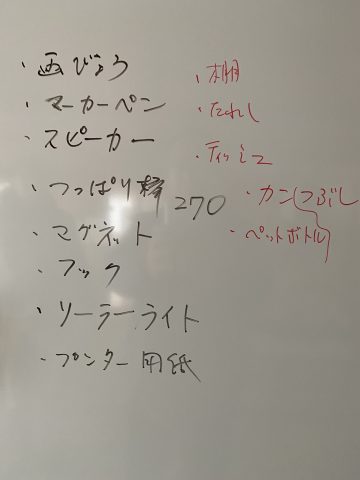 ・画びょう
・マーカーペン
・スピーカー
・つっぱり棒 270
・マグネット
・フック
・ソーラーライト
・プンター用紙
・棚
・たわし
・ティッシュ
・カンつぶし
・ペットボトル